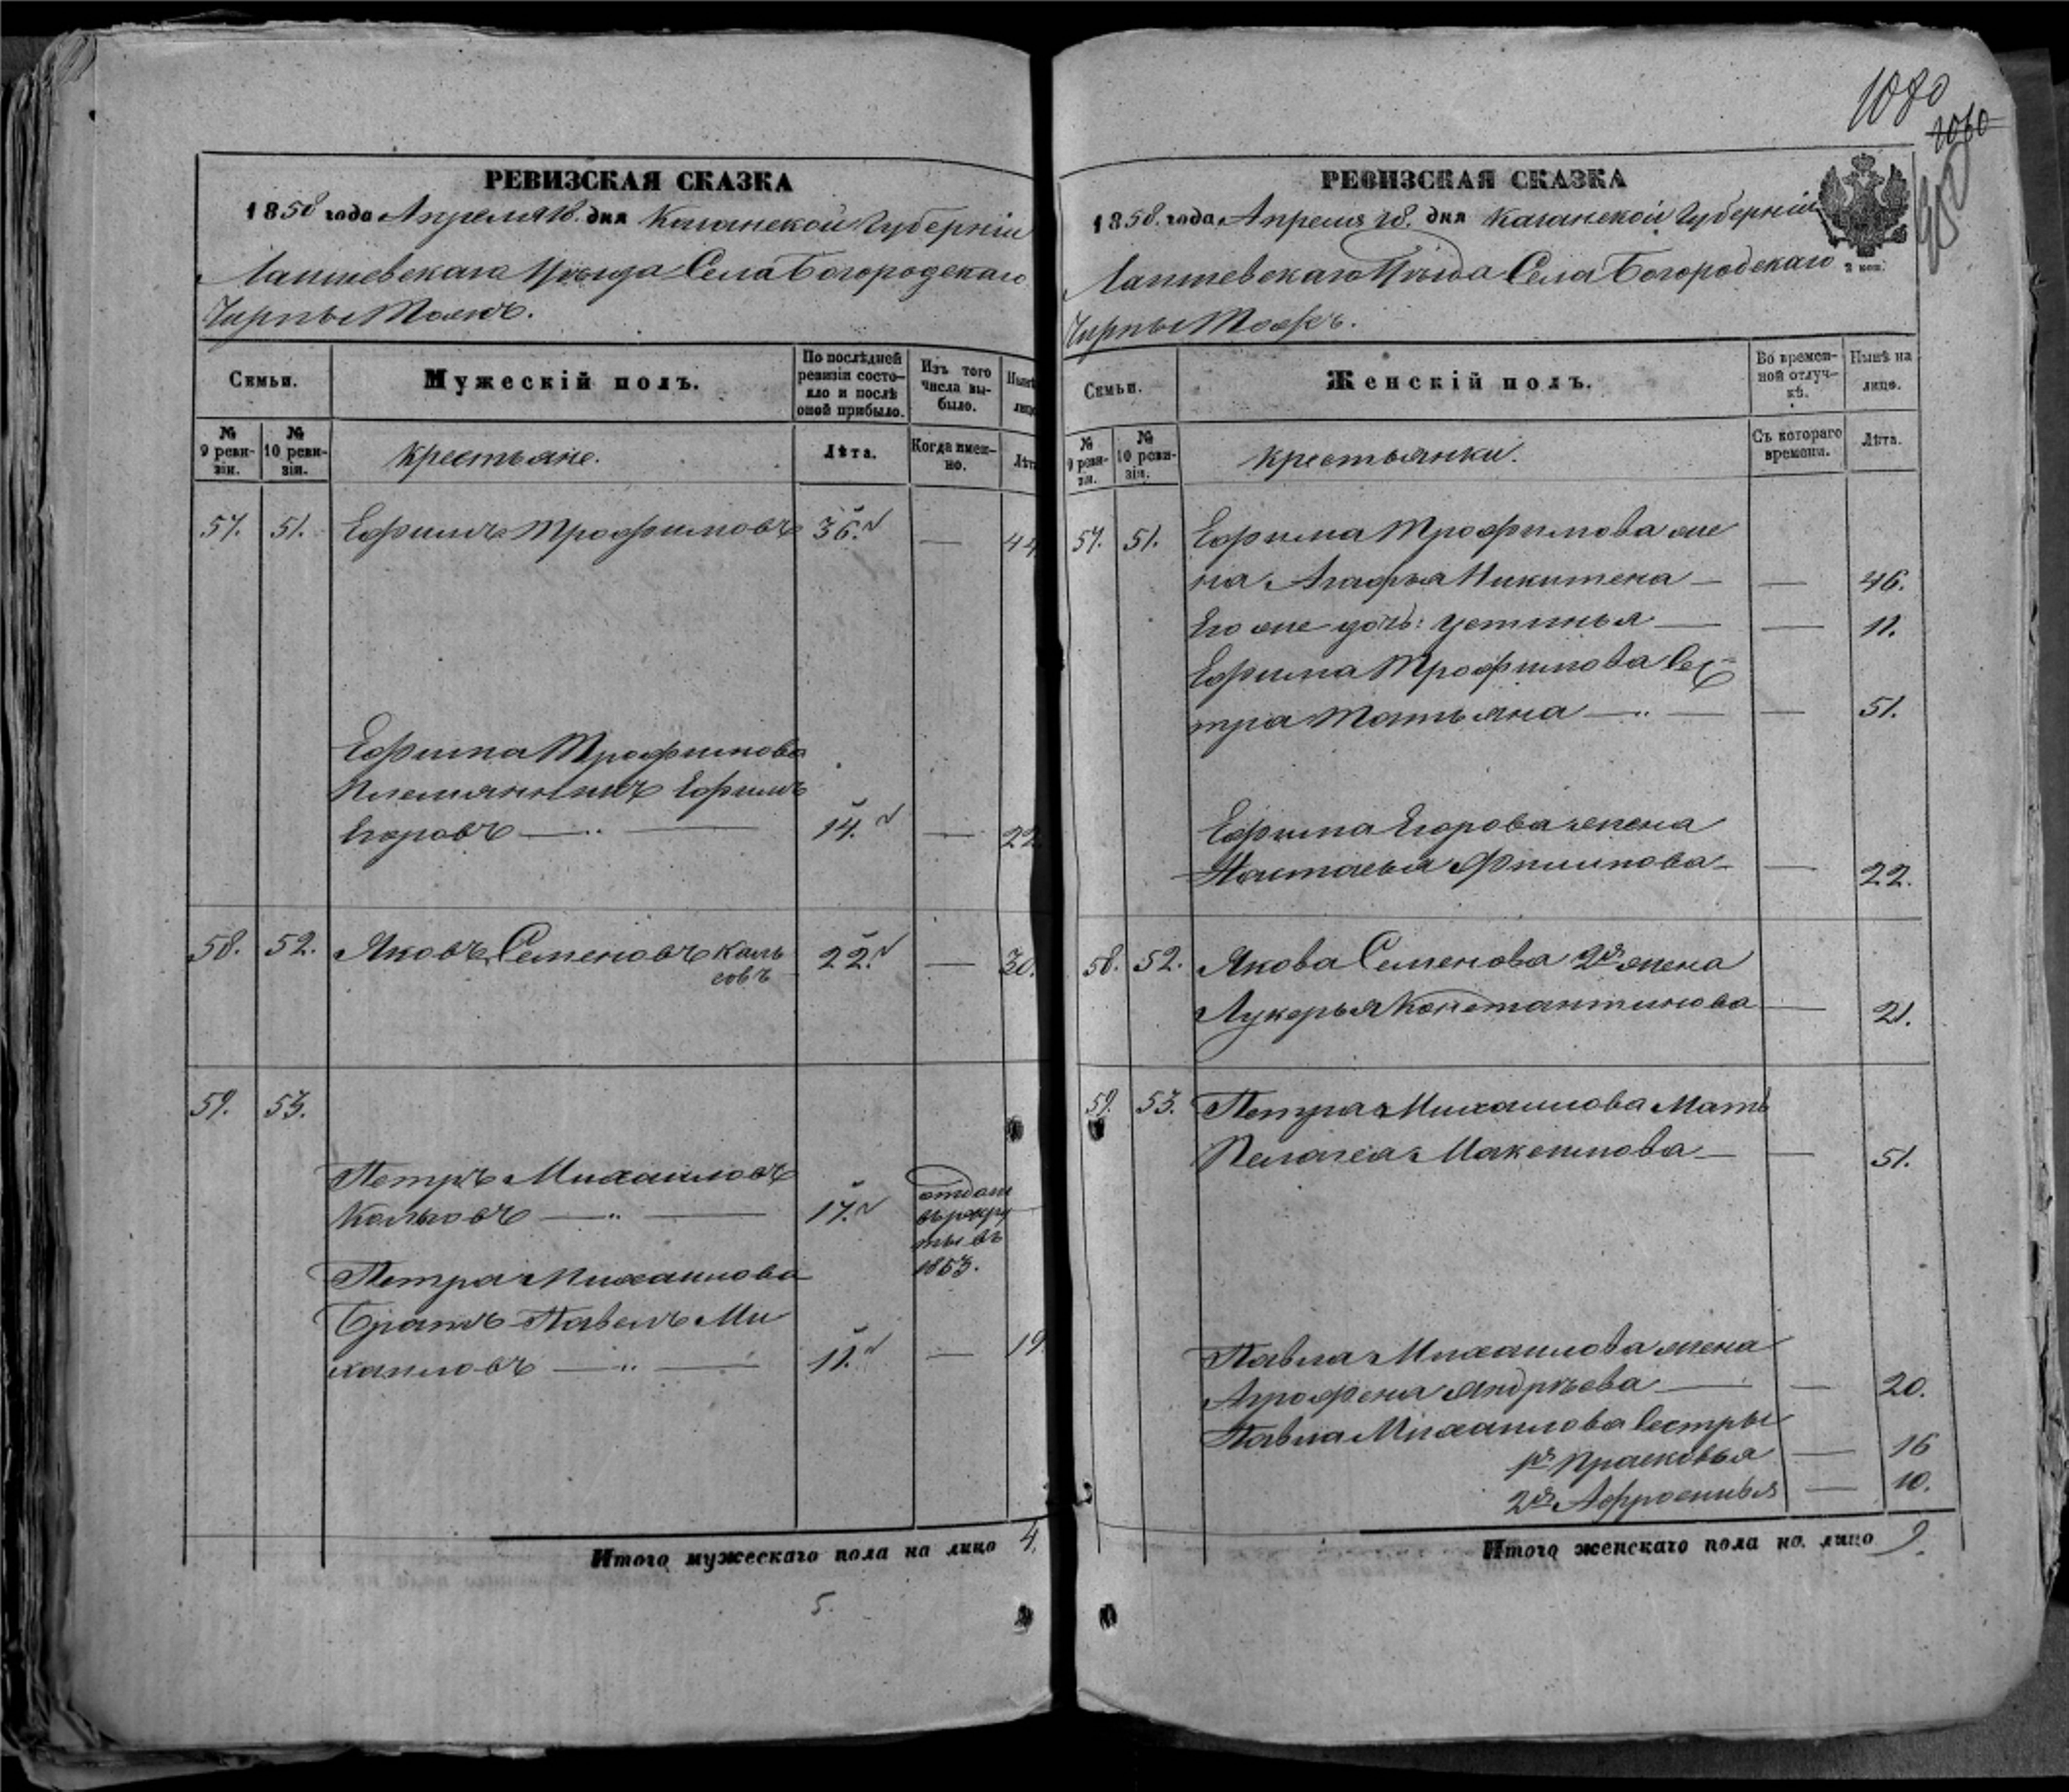 1080
1060
РЕВИЗСКАЯ СКАЗКА
1858 года Апреля 18. дня Казанской Губерніи
Лаишевскаго Уѣзда Села Богородскаго
Чирпы Тожъ.
Семьи.
Мужескій полъ.
По послѣдней ревизіи состояло и послѣ оной прибыло.
Изъ того числа выбыло.
Нынѣ лицо
№ 9 ревизіи.
№ 10 ревизіи.
Крестьяне.
Лѣта.
Когда именно.
Лѣт
57. 51. Ефимъ Трофимовъ 36. — 44
Ефима Трофимова
Племянникъ Ефимъ
Егоровъ — „ — 14. — 22.
58. 52. Яковъ Семеновъ Коль
совъ 22. — 30.
59. 53.
Петръ Михаиловъ
Кольсовъ — „ — 17. отдан
въ рекру
ты въ
1853.
Петра Михаилова
Братъ Павелъ Ми
хаиловъ — „ — 11. — 19
Итого мужескаго пола на лицо 4.
5.
РЕВИЗСКАЯ СКАЗКА
1858. года Апреля 18. дня Казанской Губерніи
Лаишевскаго Уѣзда Села Богородскаго
2 коп.
Чирпы Тожъ.
Семьи.
Женскій полъ.
Во временной отлучкѣ.
Нынѣ на лицо.
№ 9 ревизіи.
№ 10 ревизіи.
Крестьянки.
Съ котораго времени.
Лѣта.
57. 51. Ефима Трофимова же
на Агафья Никитена — — 46.
Его же дочь: Устинья — — 11.
Ефима Трофимова Сес-
тра Татьяна — „ — — 51.
Ефима Егорова жена
Настасья Филипова — — 22.
58. 52. Якова Семенова 2я жена
Лукерья Константинова — 21.
59. 53. Петра Михаилова Мать
Пелагея Максимова — — 51.
Павла Михаилова жена
Агрофена Андрѣева — — 20.
Павла Михаилова Сестры
1я Прасковья — 16
2я Афросинья — 10.
Итого женскаго пола на лицо 9.